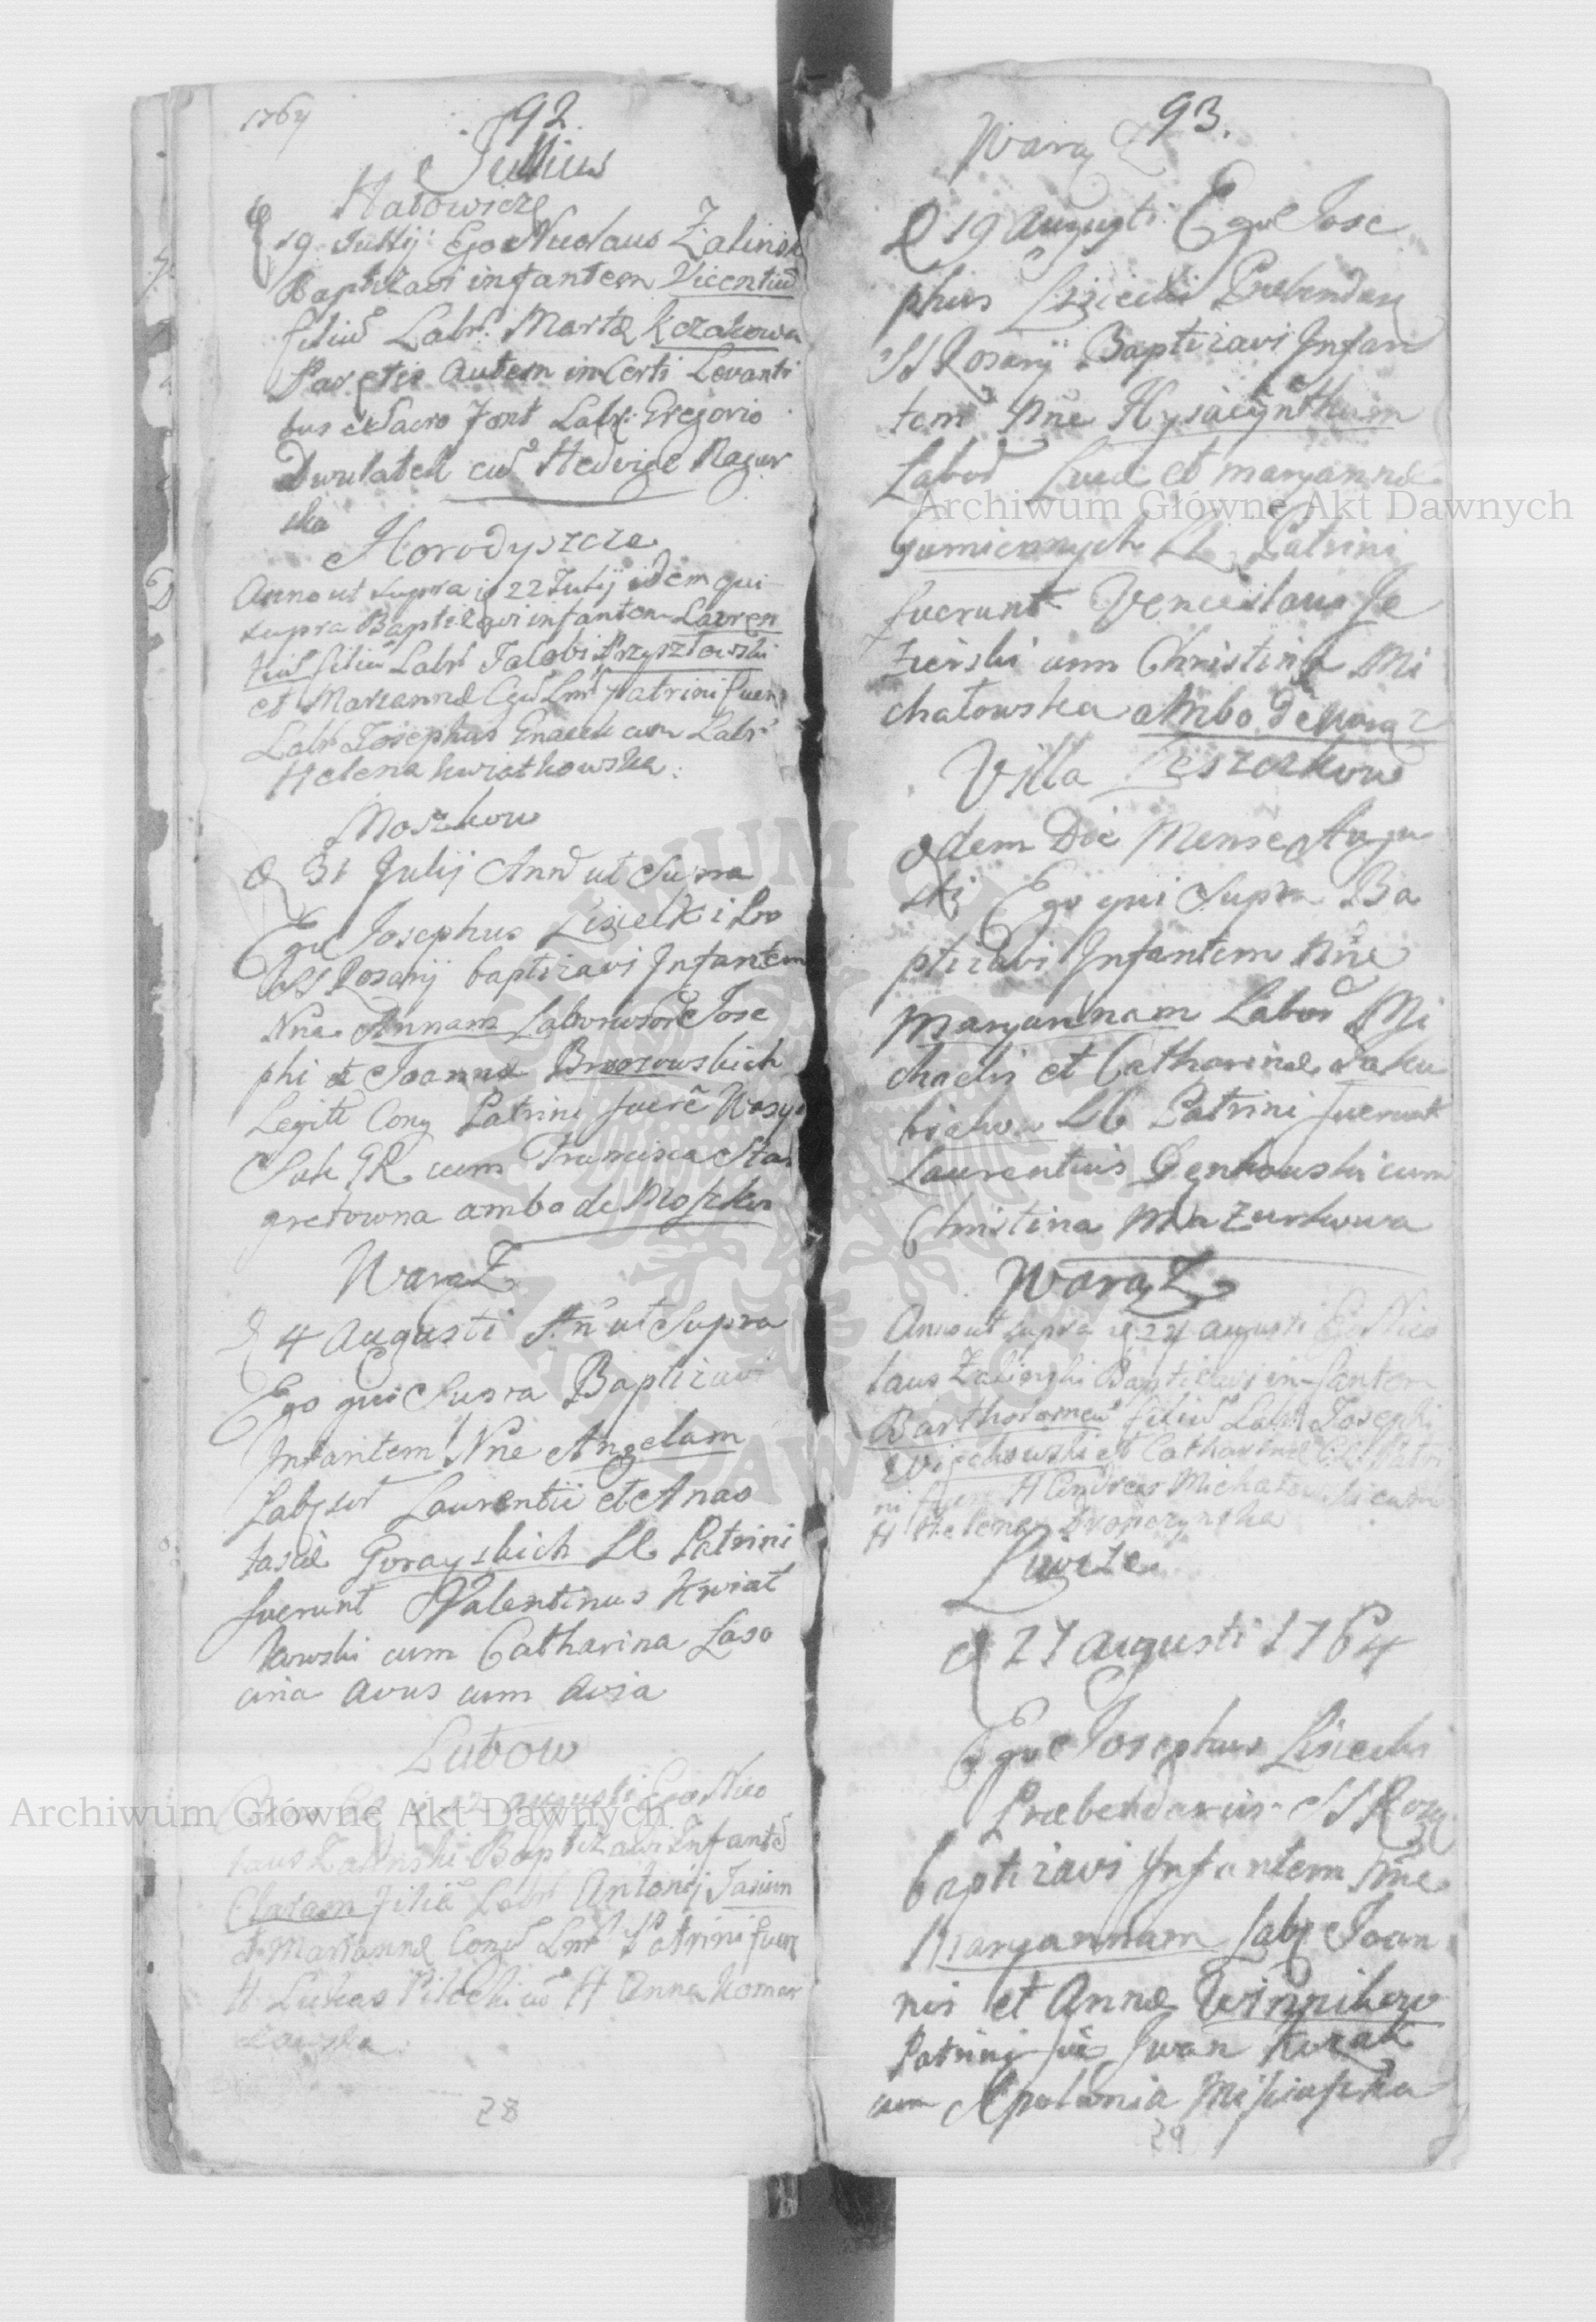 1764
92
Jullius
Hatowicze
19 Jullij Ego Nicolaus Zalinsk
Baptizavi infantem Vicentiū
filiū Labr: Martæ Kozakowa
Patris autem incerti Levanti
bus e Sacro Font Labr: Gregorio
cū Hedvige Ragur
ska
Horodyszcze
Anno ut supra 22 Julij idem qui
supra Baptizavi infantem Lauren
tiū filiū Labr Jacobi Przysztowski
et Mariannæ Patrini fuer
Labr Josephus Gnacek cum Labr
Helena Kwiatkowska.
Moszkow
D 31 Julij Anno ut Supra
Ego Josephus Lisiecki
SS Rosarij baptizavi Infantem
Nne Annam Jose
phi et Joannæ Brzozowskich
Legitt Conj Patrini fuerē Wasy
Suk GR cum Francisca Sta
gretowna ambo de Moszkow
Waręż
D 4 Augusti An ut Supra
Ego qui Supra Baptizavi
Infantem Nne Angelam
Laurentii et Anas
tasiæ Gorayskich LC Patrini
fuerunt Valentinus Kwiat
kowski cum Catharina Laso
cina avus cum avia
Lubow
Augusti Ego Nico
laus Zalinski Baptizavi Infantē
Claram filiā Labr Antonij Jasium
et Mariannæ Conj Patrini fuer
H Lukas Pilecki cū H Anna Komar
28
93.
Waręż
D 19 Augusti Ego Jose
phus Lisiecki Prebendar
SS Rosarij Baptizavi Infan
tem Nne Hyacynthum
Labor Lucæ et Maryannæ
Gumiennych LC Patrini
fuerunt Venceslaus Je
zierski cum Christina Mi
chałowska ambo de Waręż
Villa Leszczkow
odem Die Mense Augu
sti Ego qui Supra Ba
ptizavi Infantem Nne
Maryannam Labor Mi
chaelis et Catharinæ Jaku
biakow LC Patrini fuerunt
Laurentius cum
Christina Mazurkowa
Waręż
Anno ut supra 24 Augusti Ego Nico
laus Zalinski Baptizavi infantem
Bartholomeū filiū Labr Josephi
Woychowski et Catharinæ Patri
ni fuer H Andreas Michałowski cum
H Helena
Liwcze
D 27 Augusti 1764
Ego Josephus Lisiecki
Præbendarius SS Rosa
baptizavi Infantem Nne
Maryannam Lab Joan
nis et Annæ Winnikow
Patrini fue Iwan Kozak
cum Apolonia
29
Archiwum Główne Akt Dawnych
Archiwum Główne Akt Dawnych